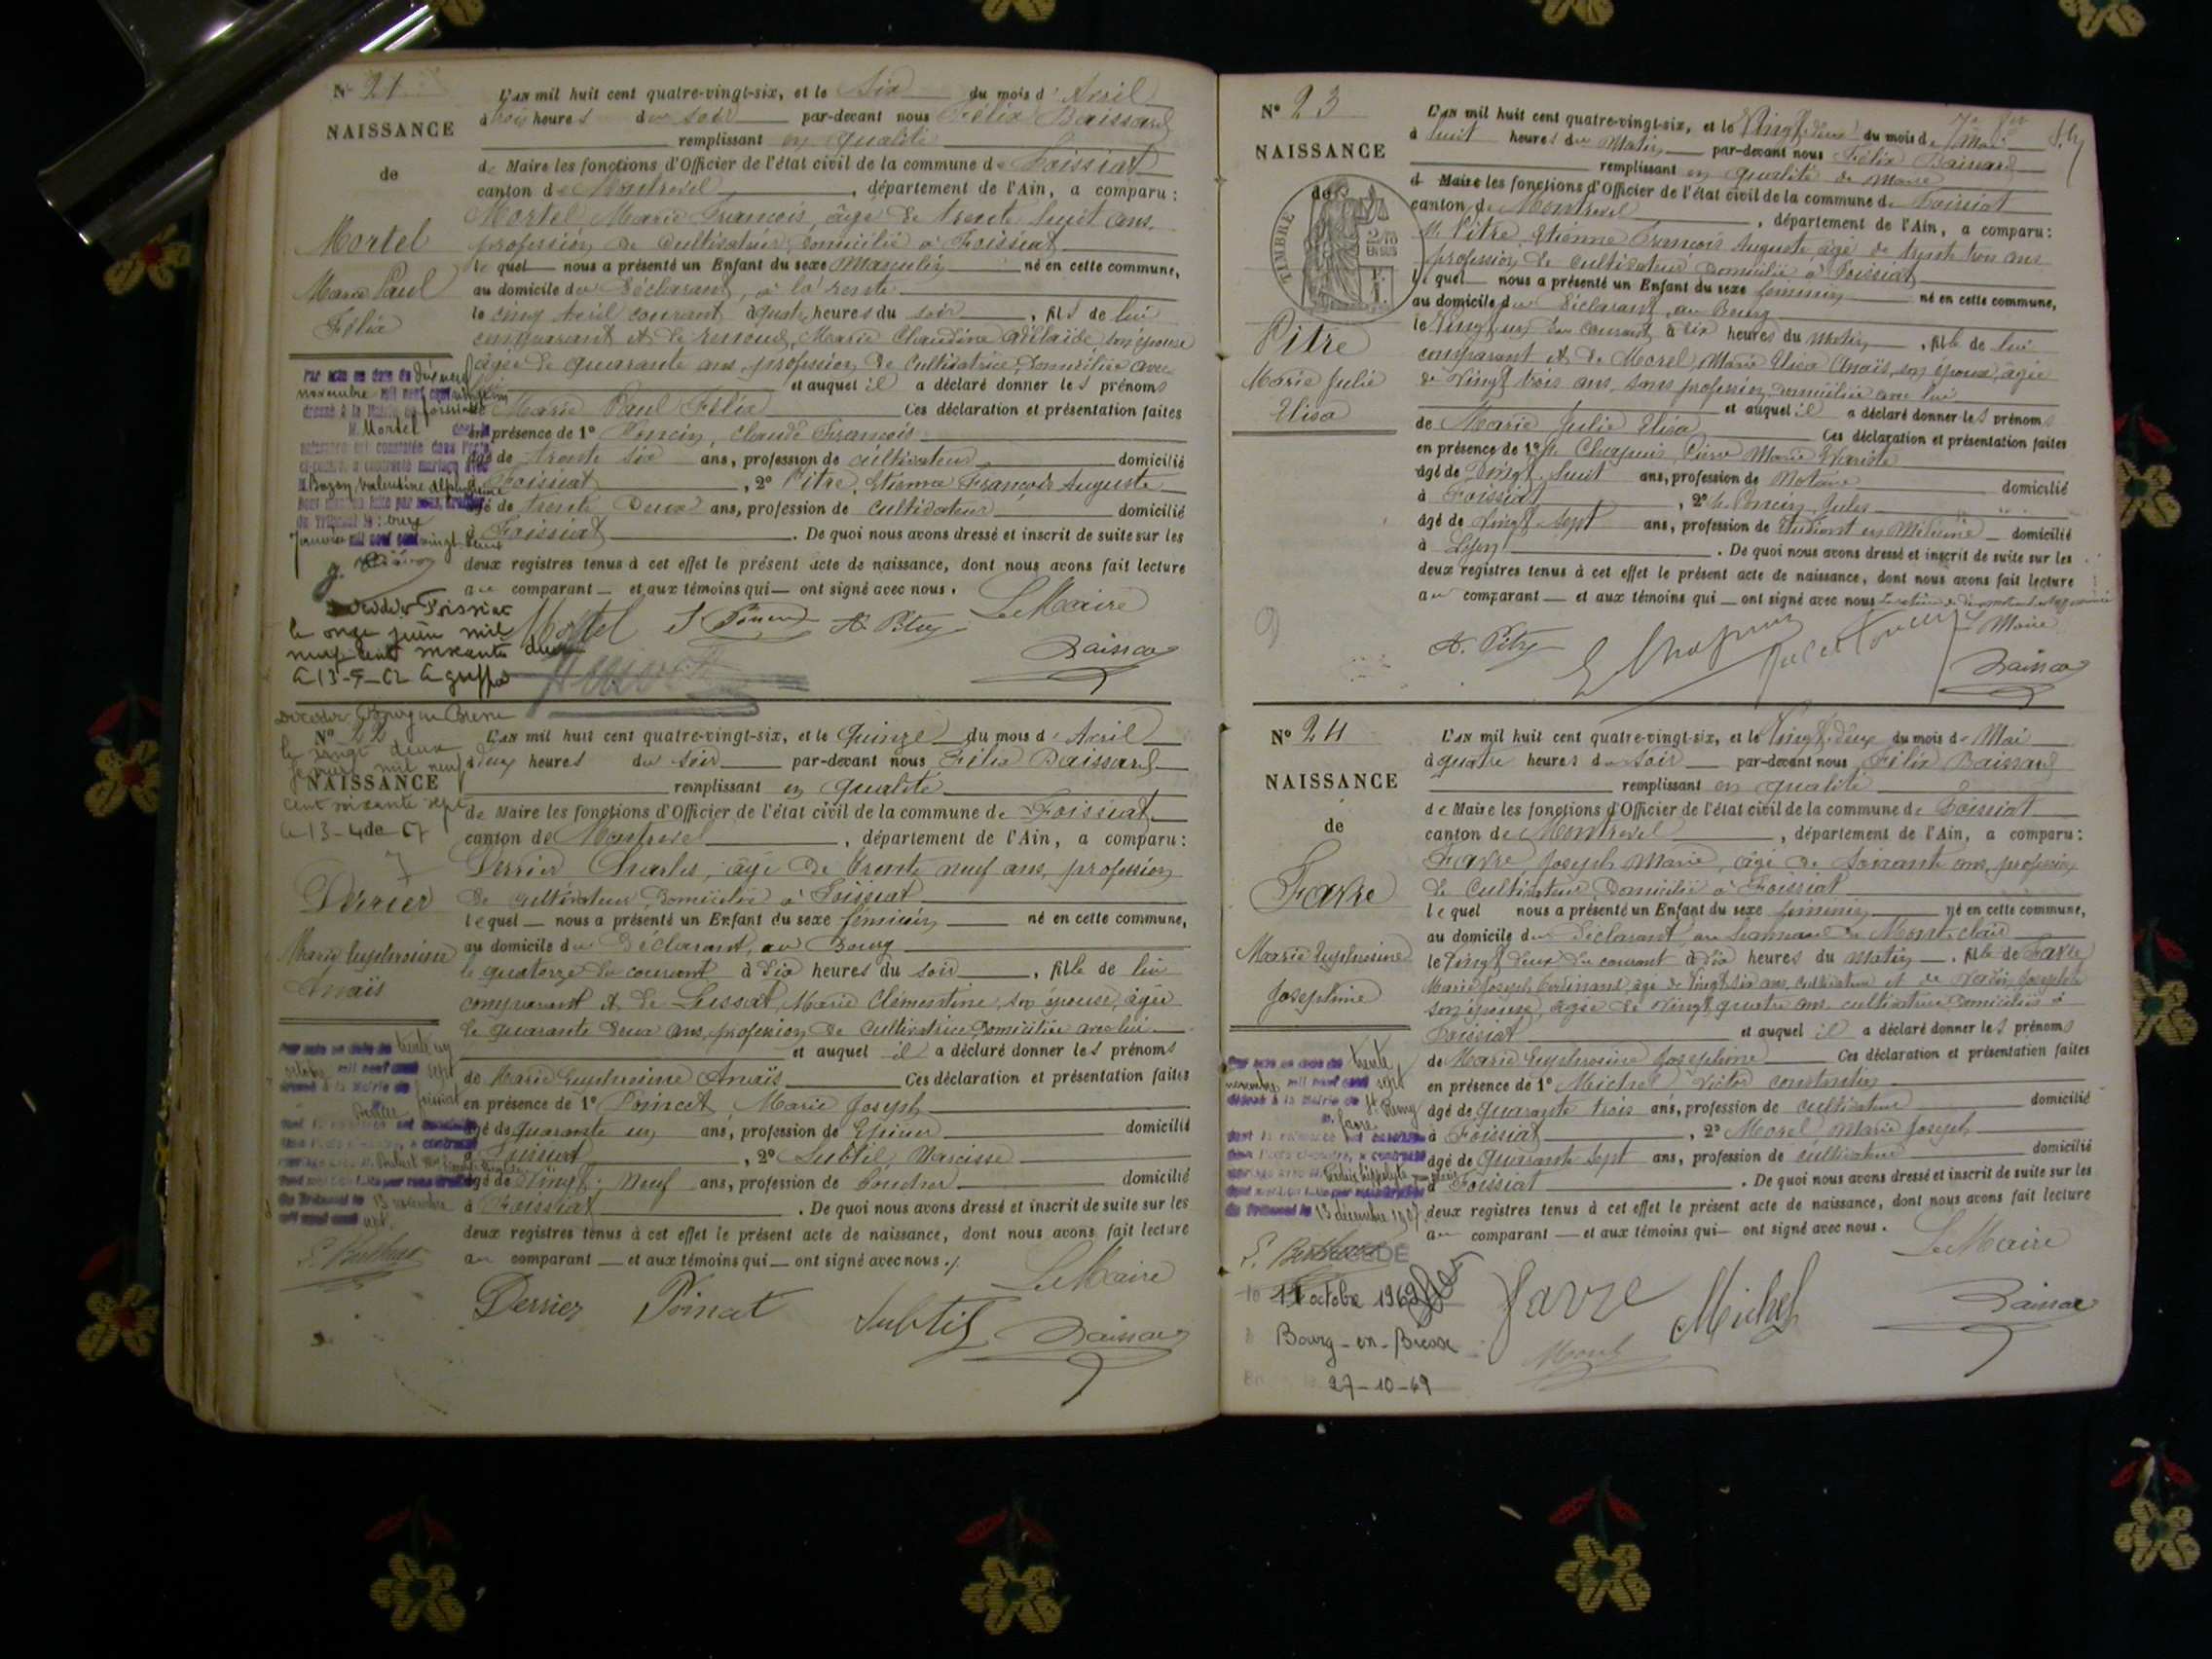 N° 21
NAISSANCE
de
Mortel
Marie Paul
Félix
L'an mil huit cent quatre-vingt-six, et le Six du mois d'Avril
à trois heures du soir par-devant nous Félix Baissard
remplissant en qualité
de Maire les fonctions d'Officier de l'état civil de la commune de Foissiat
canton de Montrevel, département de l'Ain, a comparu:
Mortel Marie François, âgé de trente huit ans,
profession de cultivateur, domicilié à Foissiat
lequel nous a présenté un Enfant du sexe Masculin né en cette commune,
au domicile du déclarant, à la
le cinq Avril courant à quatre heures du soir, fils de lui
comparant et de Renoud, Marie Claudine Adélaïde, son épouse
âgée de quarante ans, profession de cultivatrice, domiciliée avec
lui et auquel il a déclaré donner les prénoms
de Marie Paul Félix Ces déclaration et présentation faites
en présence de 1° Poncin, Claude François
âgé de trente six ans, profession de cultivateur domicilié
à Foissiat, 2° Pitre, Etienne François Auguste
âgé de trente deux ans, profession de cultivateur domicilié
à Foissiat. De quoi nous avons dressé et inscrit de suite sur les
deux registres tenus à cet effet le présent acte de naissance, dont nous avons fait lecture
au comparant et aux témoins qui ont signé avec nous.
Le Maire
Mortel
Par acte en date du dix neuf
novembre mil neuf cent vingt un
dressé à la Mairie de Foissiat
M. Mortel dont la
naissance est constatée dans l'acte
ci-contre, a contracté mariage avec
M. Bozon, Valentine Alphonsine
du Tribunal le: onze
Janvier mil neuf cent vingt deux
Décédé à Foissiat
le onze juin mil
neuf cent soixante deux
Décédée à Bourg en Bresse
le vingt deux
janvier mil neuf
cent soixante sept
N° 22
NAISSANCE
Derrier
Marie Euphrosine
Anaïs
L'an mil huit cent quatre-vingt-six, et le Quinze du mois d'Avril
à deux heures du soir par-devant nous Félix Baissard
remplissant en qualité
de Maire les fonctions d'Officier de l'état civil de la commune de Foissiat
canton de Montrevel, département de l'Ain, a comparu:
Derrier Charles, âgé de trente neuf ans, profession
de cultivateur, domicilié à Foissiat
lequel nous a présenté un Enfant du sexe féminin né en cette commune,
au domicile du déclarant, au Bourg
le quatorze du courant à dix heures du soir, fille de lui
comparant et de Gussat, Marie Clémentine, son épouse, âgée
de quarante deux ans, profession de cultivatrice, domiciliée avec lui
et auquel il a déclaré donner les prénoms
de Marie Euphrosine Anaïs Ces déclaration et présentation faites
en présence de 1° Poincet, Marie Joseph
âgé de quarante un ans, profession de Epicier domicilié
à Foissiat, 2° Subtil, Narcisse
âgé de vingt neuf ans, profession de domicilié
à Foissiat. De quoi nous avons dressé et inscrit de suite sur les
deux registres tenus à cet effet le présent acte de naissance, dont nous avons fait lecture
au comparant et aux témoins qui ont signé avec nous.
Le Maire
Derrier Subtil
Par acte en date du trente un
octobre mil neuf cent sept
dressé à la Mairie de Foissiat
du Tribunal le 13 novembre
mil neuf cent sept.
N° 23
NAISSANCE
de
TIMBRE
Pitre
Marie Julie
Elisa
L'an mil huit cent quatre-vingt-six, et le Vingt-deux du mois de Mai
à huit heures du Matin par-devant nous Félix Baissard
remplissant en qualité de Maire
d Maire les fonctions d'Officier de l'état civil de la commune de Foissiat
canton de Montrevel, département de l'Ain, a comparu:
M. Pitre, Etienne François Auguste âgé de trente trois ans
profession de cultivateur domicilié à Foissiat
lequel nous a présenté un Enfant du sexe féminin né en cette commune,
au domicile du déclarant, au Bourg
le Vingt un du courant à dix heures du matin, fille de lui
comparant et de Morel, Marie Elisa Anaïs, son épouse, âgée
de vingt trois ans, sans profession, domiciliée avec lui
et auquel il a déclaré donner les prénoms
de Marie Julie Elisa Ces déclaration et présentation faites
en présence de 1° M. Chapuis, Pierre Marie Evariste
âgé de vingt huit ans, profession de Notaire domicilié
à Foissiat, 2° M. Poncin, Jules
âgé de vingt-sept ans, profession de Etudiant en Médecine domicilié
à Lyon. De quoi nous avons dressé et inscrit de suite sur les
deux registres tenus à cet effet le présent acte de naissance, dont nous avons fait lecture
au comparant et aux témoins qui ont signé avec nous
Le Maire
N° 24
NAISSANCE
de
Favre
Marie Euphrosine
Joséphine
L'an mil huit cent quatre-vingt-six, et le Vingt-deux du mois de Mai
à quatre heures du soir par-devant nous Félix Baissard
remplissant en qualité
de Maire les fonctions d'Officier de l'état civil de la commune de Foissiat
canton de Montrevel, département de l'Ain, a comparu:
Favre, Joseph Marie, âgé de soixante ans, profession
de cultivateur domicilié à Foissiat
lequel nous a présenté un Enfant du sexe féminin né en cette commune,
au domicile du déclarant, au hameau de Mont-clair
le vingt deux du courant à dix heures du matin, fille de Favre
Marie Joseph Ferdinand, âgé de vingt six ans, cultivateur et de
son épouse, âgée de vingt quatre ans, cultivatrice, domiciliés à
Foissiat et auquel il a déclaré donner les prénoms
de Marie Euphrosine Joséphine Ces déclaration et présentation faites
en présence de 1° Michel Victor constantin
âgé de quarante trois ans, profession de cultivateur domicilié
à Foissiat, 2° Morel Marie Joseph
âgé de quarante sept ans, profession de cultivateur domicilié
à Foissiat. De quoi nous avons dressé et inscrit de suite sur les
deux registres tenus à cet effet le présent acte de naissance, dont nous avons fait lecture
au comparant et aux témoins qui ont signé avec nous.
Le Maire
Favre Michel
Morel
Par acte en date du trente
novembre mil neuf cent sept
dressé à la Mairie de St Remy
M. Favre
du Tribunal le 13 décembre 1907.
octobre 1969
Bourg-en-Bresse
27-10-69